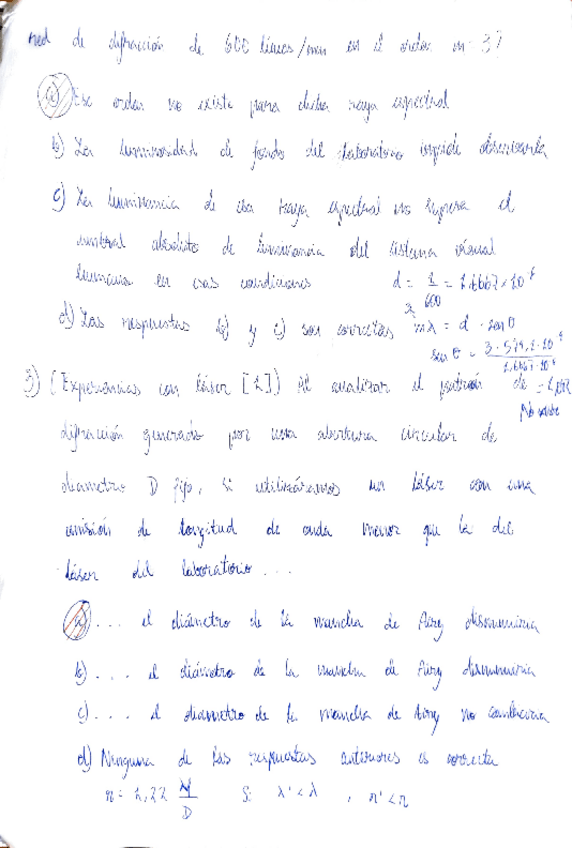 red de difracción de 600 líneas/mm en el orden m=3?
a) Ese orden no existe para dicha raya espectral
b) La luminosidad de fondo del laboratorio impide observarla
c) La luminancia de esa raya espectral no supera el
umbral absoluto de luminancia del sistema visual
humano en esas condiciones d = 1/600 = 1,6667×10
d) Las respuestas b) y c) son correctas mλ = d · senθ
sen θ = 3·579,1·10 / 1,6667·10
3) (Experiencias con láser [1]) Al analizar el patrón de
No existe
difracción generado por una abertura circular de
diámetro D fijo, si utilizáramos un láser con una
emisión de longitud de onda menor que la del
láser del laboratorio...
a) ... el diámetro de la mancha de Airy disminuiría
b) ... el diámetro de la mancha de Airy
c) ... el diámetro de la mancha de Airy no cambiaría
d) Ninguna de las respuestas anteriores es correcta
r = 1,22 λf/D Si λ' < λ , r' < r